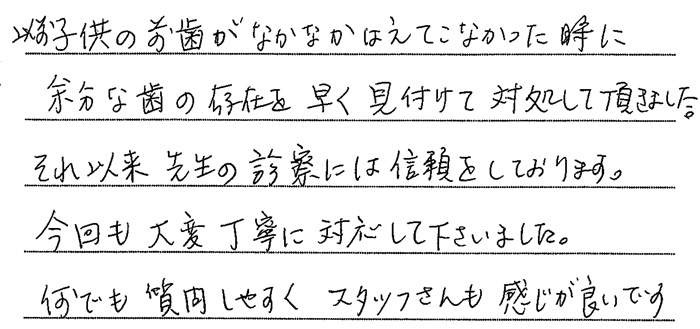 以前子供の前歯がなかなかはえてこなかった時に
余分な歯の存在を早く見付けて対処して頂きました。
それ以来先生の診察には信頼をしております。
今回も大変丁寧に対応して下さいました。
何でも質問しやすくスタッフさんも感じが良いです